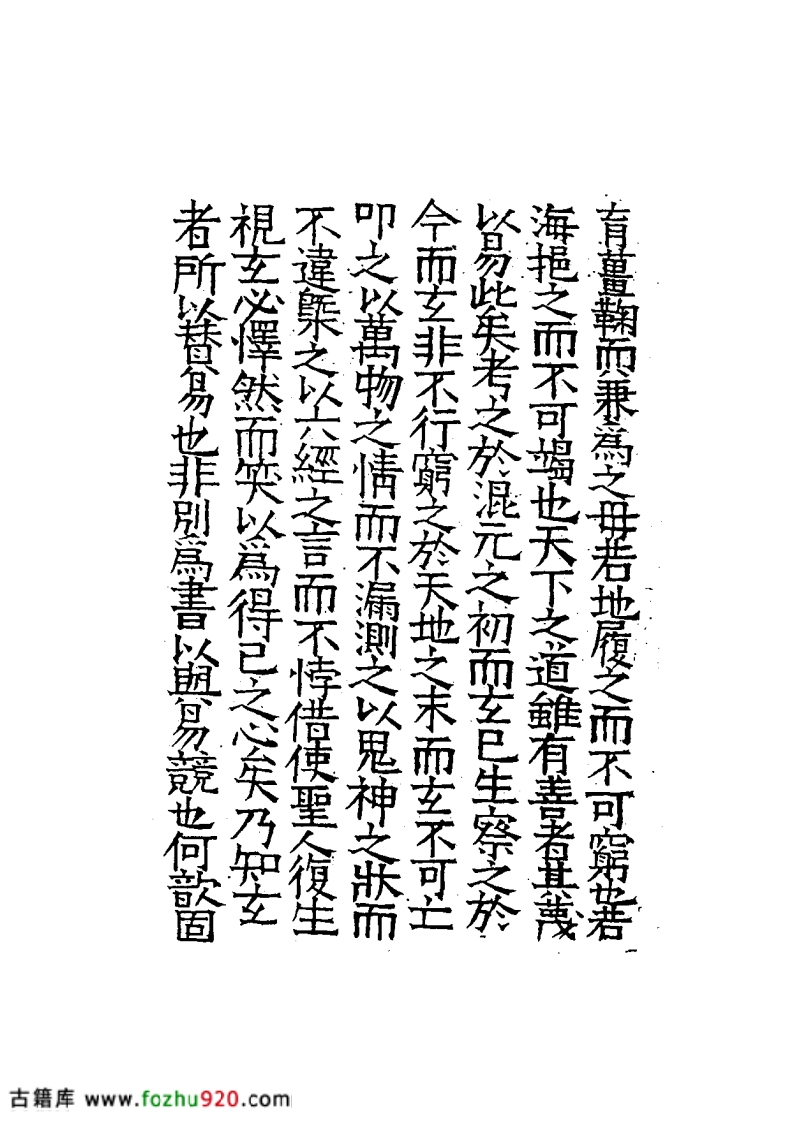 育薑鞠而兼爲之毋若地履之而不可窮也若
海挹之而不可竭也天下之道雖有善者其蔑
以易此矣考之於混元之初而玄已生察之於
今而玄非不行窮之於天地之末而玄不可亡
叩之以萬物之情而不漏測之以鬼神之狀而
不違槩之以六經之言而不悖借使聖人復生
視玄必懌然而笑以爲得已之心矣乃知玄
者所以贊易也非別爲書以與易競也何歆固
古籍库 www.fozhu920.com